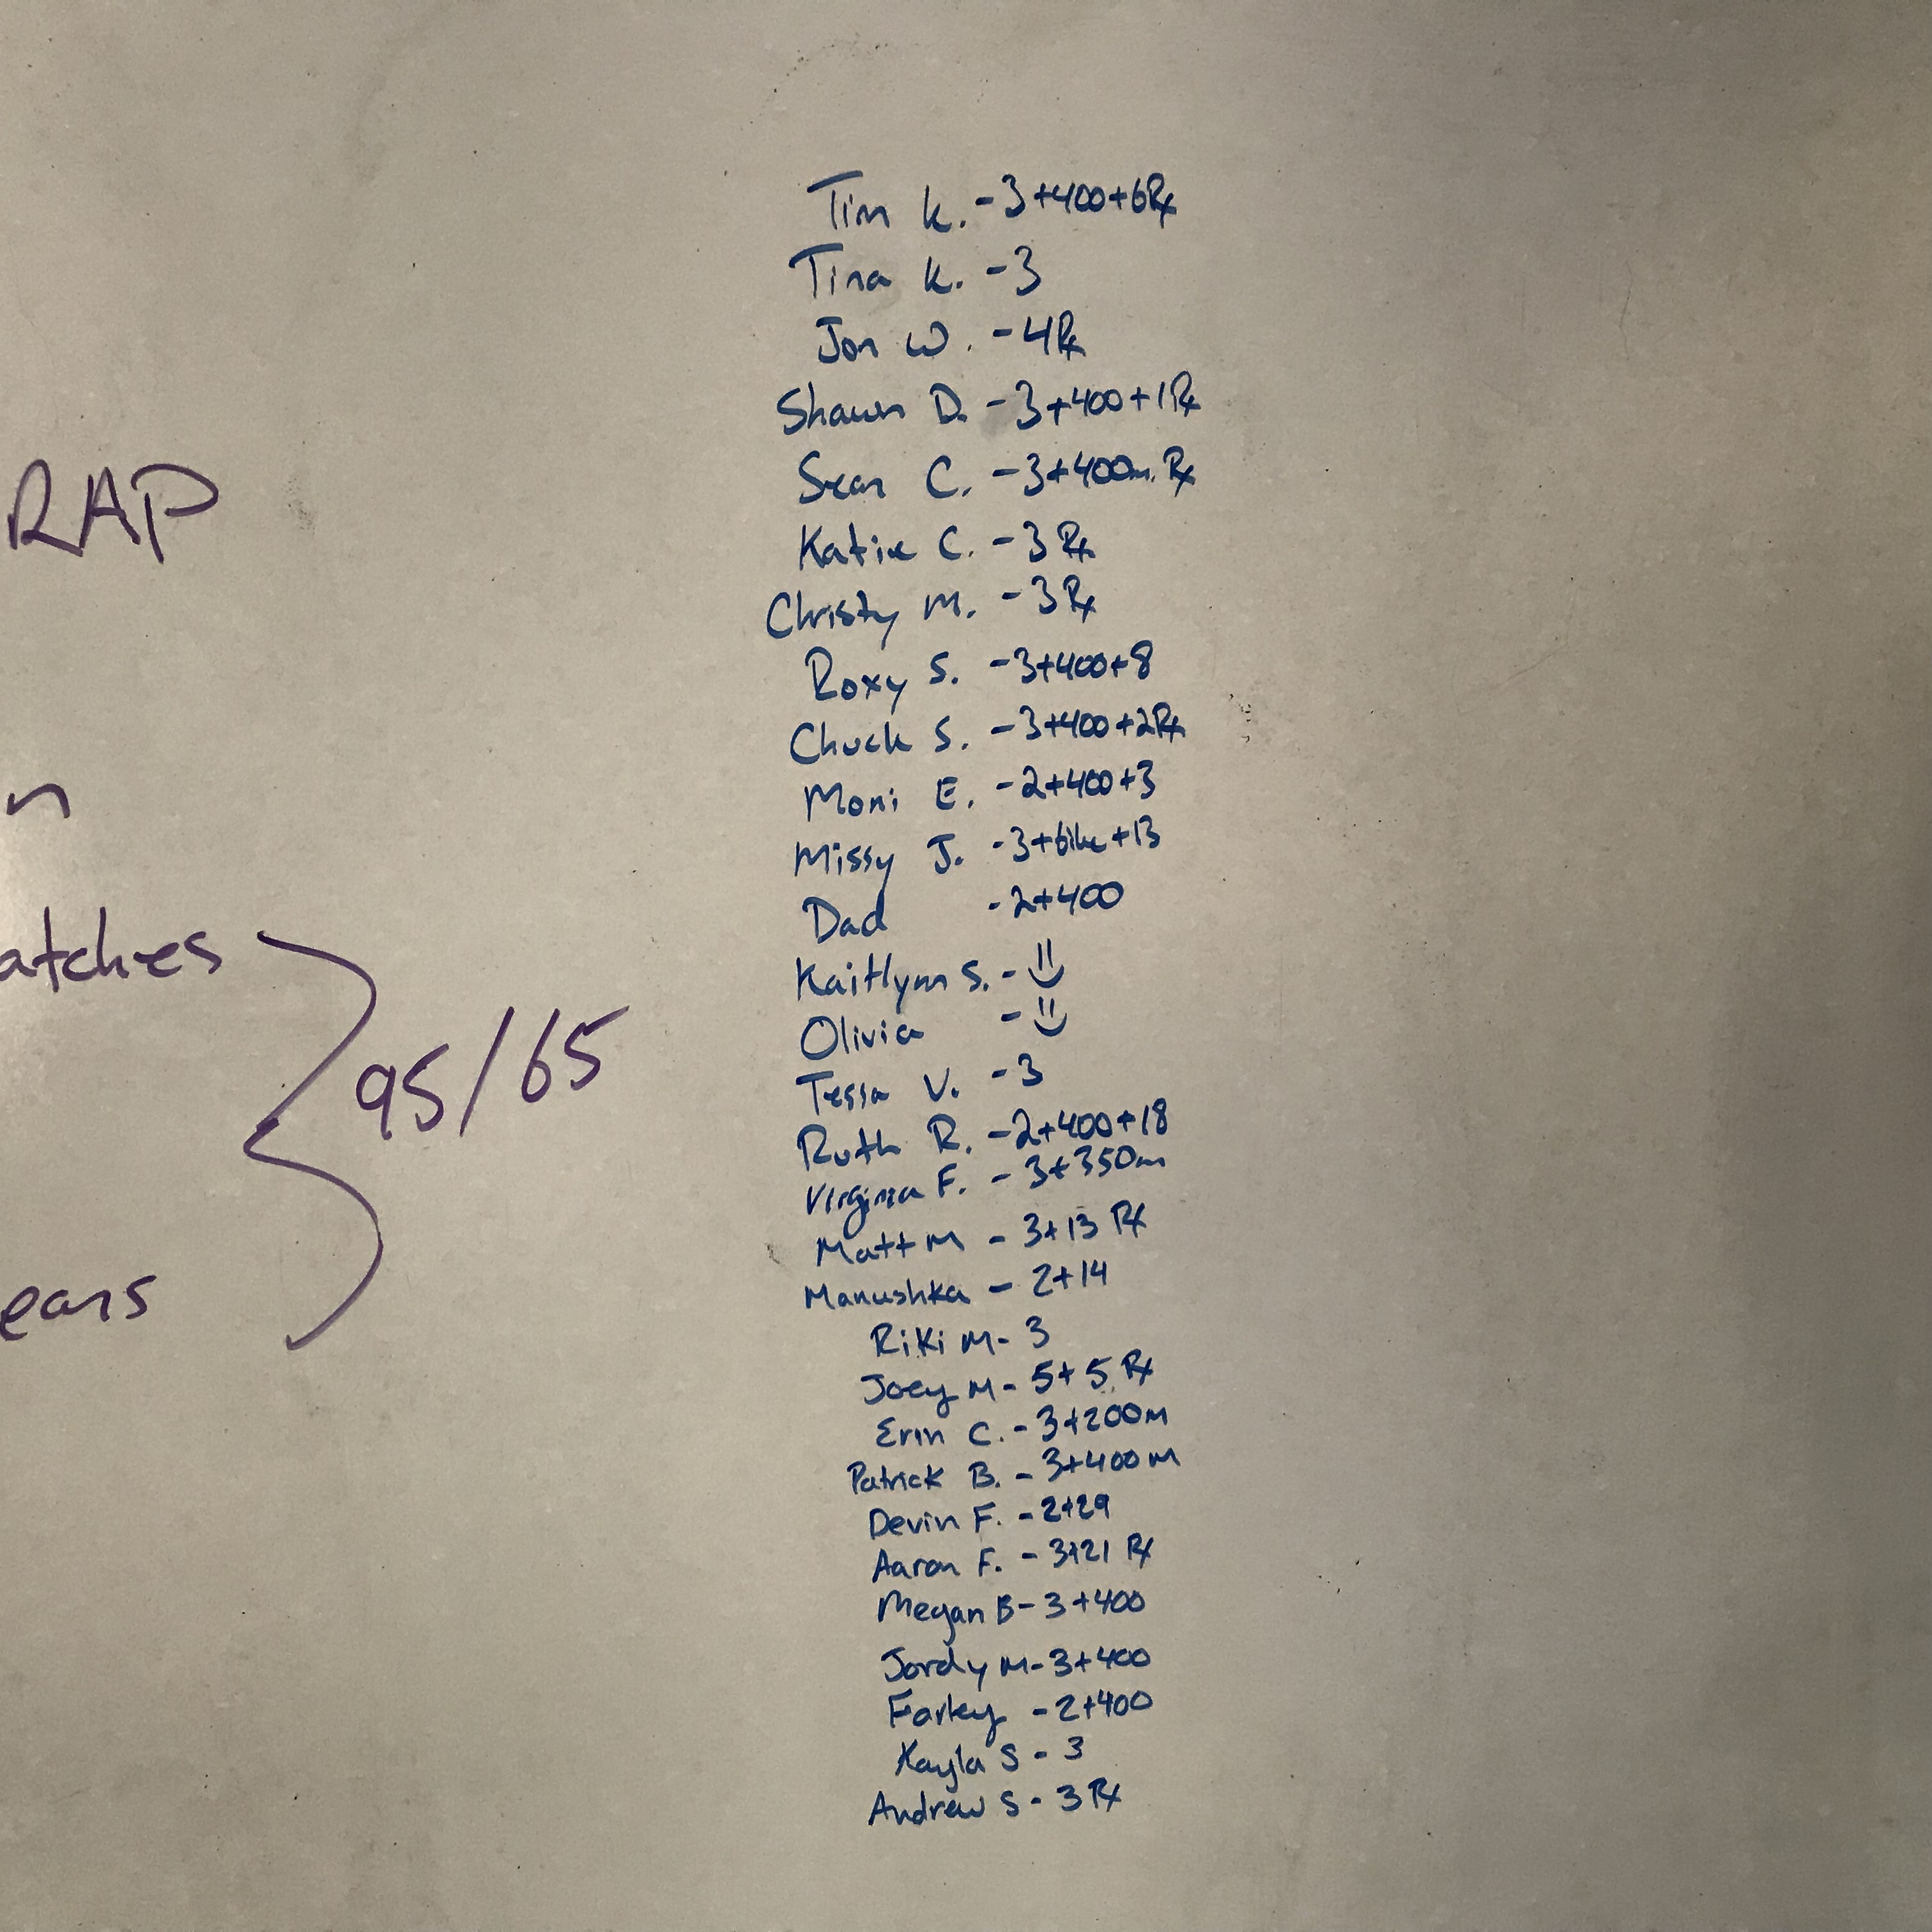 RAP
n
atches
95/65
ears
Tim K. -3+400+6Rx
Tina K. -3
Jon W. -4Rx
Shawn D. -3+400+1Rx
Sean C. -3+400m Rx
Katie C. -3 Rx
Christy M. -3Rx
Roxy S. -3+400+8
Chuck S. -3+400+2Rx
Moni E. -2+400+3
Missy J. -3+bike+13
Dad -2+400
Kaitlynn S. -
Olivia -
Tessa V. -3
Ruth R. -2+400+18
Virginia F. - 3+350m
Matt M - 3+13 Rx
Manushka - 2+14
Riki M- 3
Joey M- 5+5 Rx
Erin C. - 3+200m
Patrick B. - 3+400m
Devin F. - 2+29
Aaron F. - 3+21 Rx
Megan B- 3+400
Jordy M- 3+400
Farley - 2+400
Kayla S - 3
Andrew S - 3 Rx